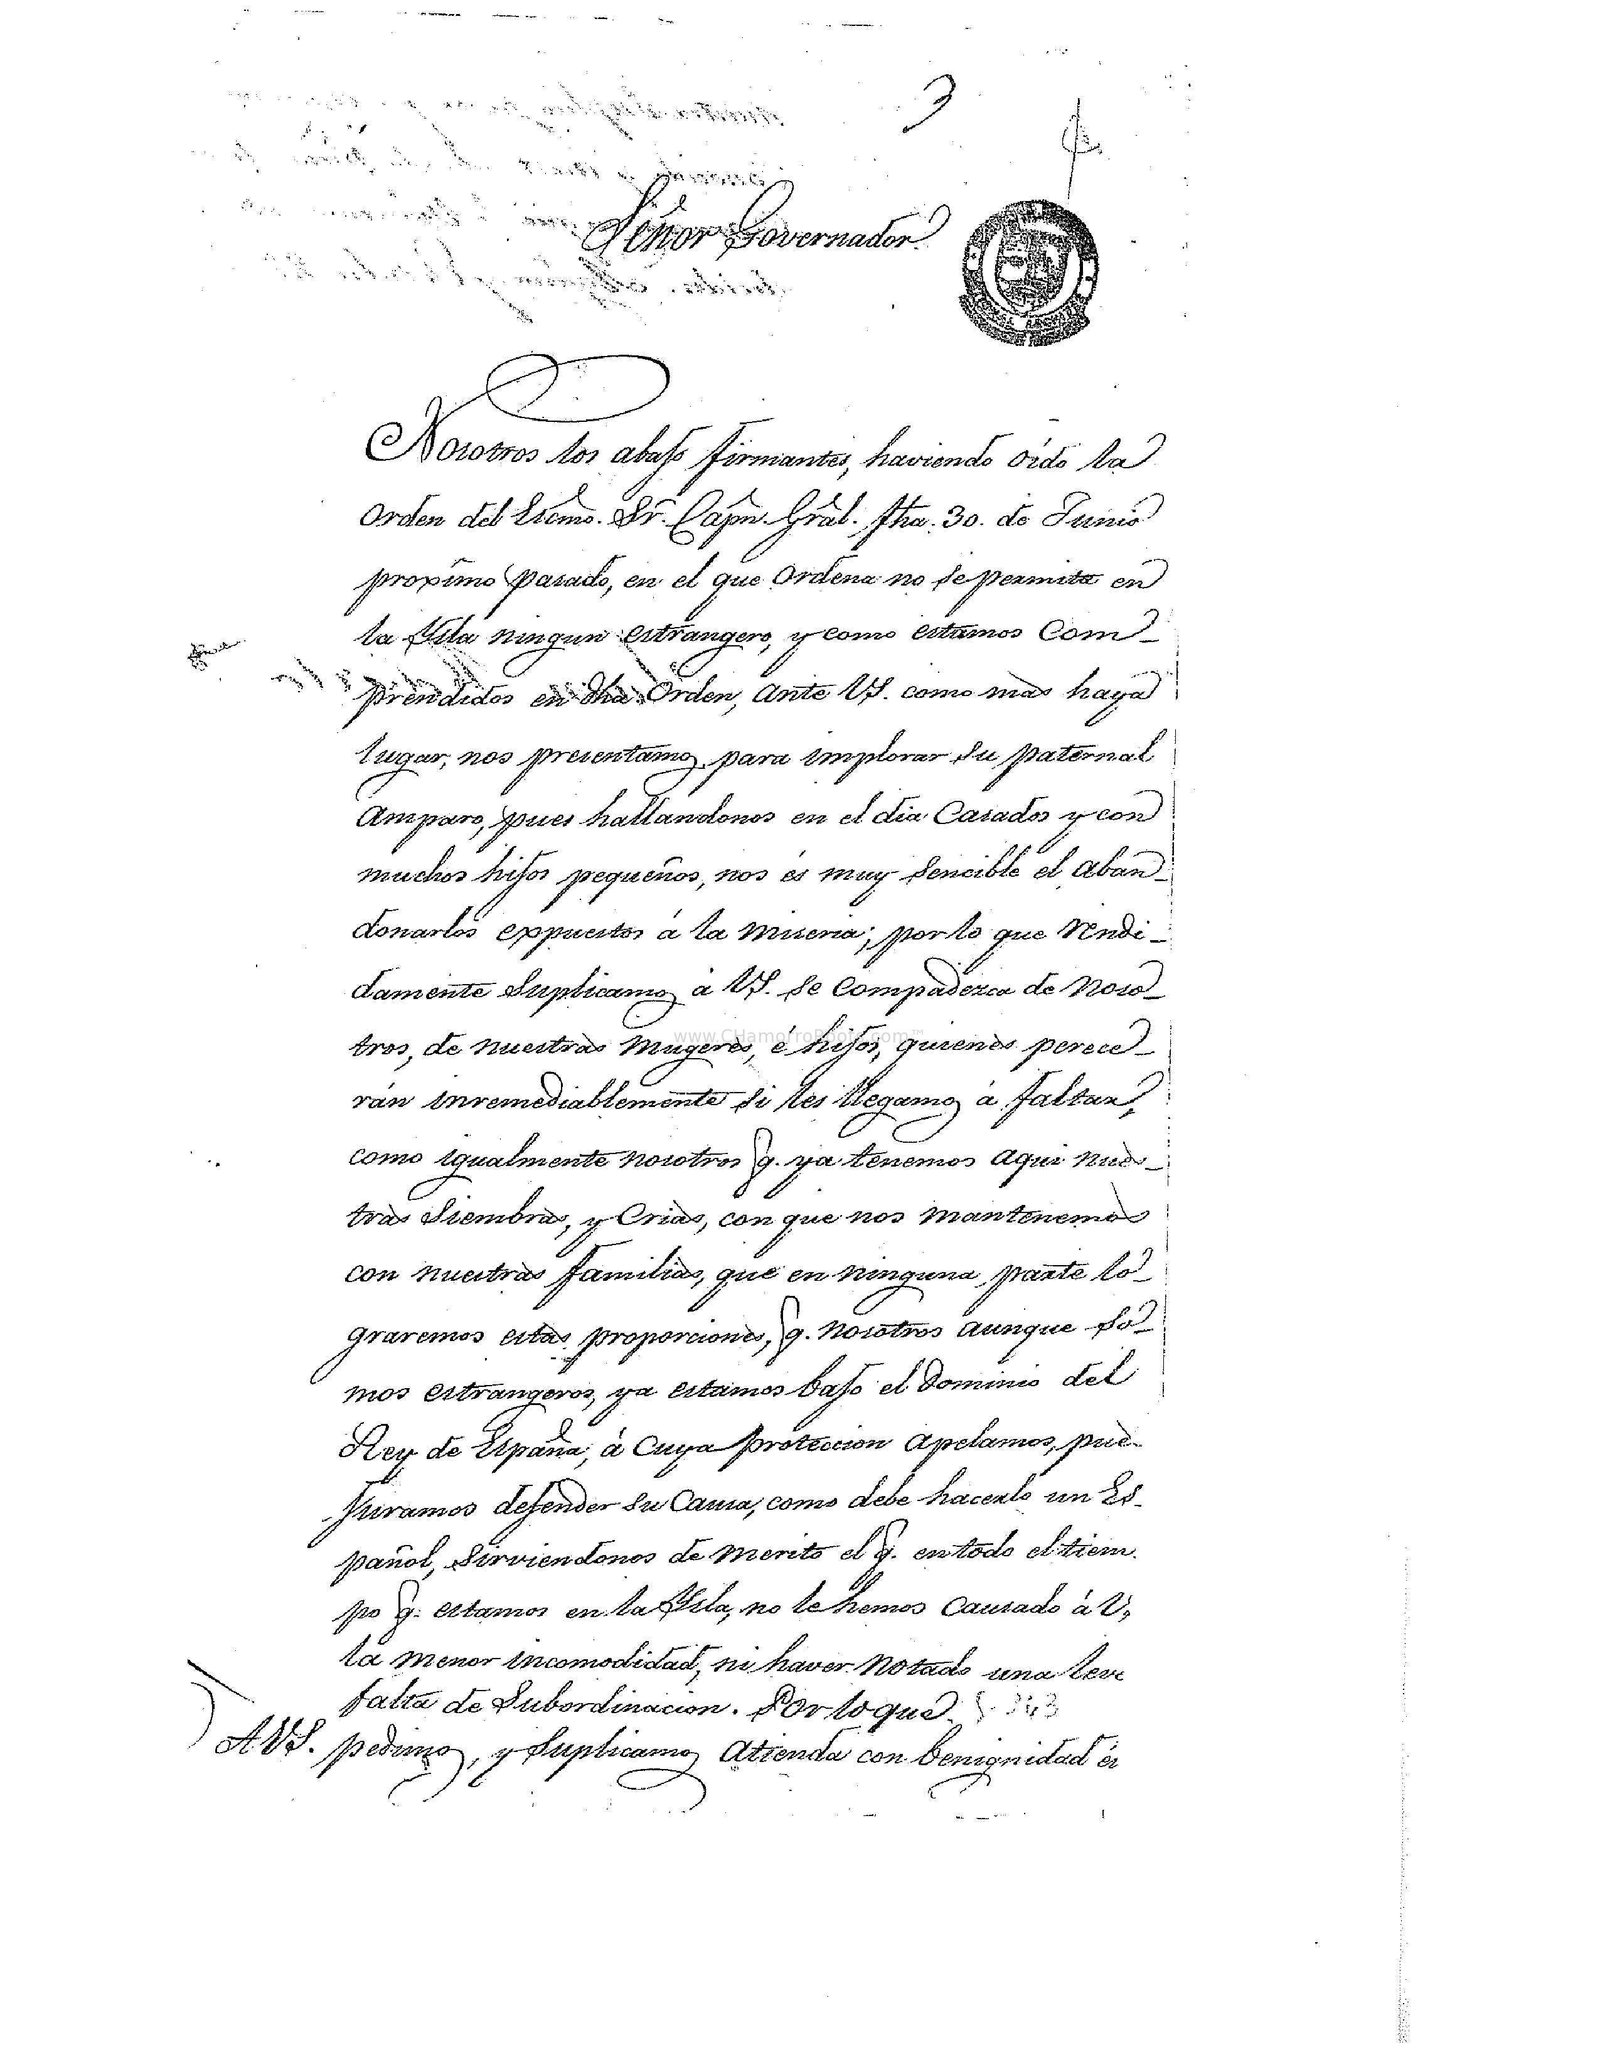 3
Señor Governador
Nosotros los abajo firmantes, haviendo oido la
Orden del Excmo. Sr. Capn. Gral. fha. 30. de Junio
proximo pasado, en el que Ordena no se permita en
la Ysla ningun estrangero, y como estamos Com_
prendidos en dha. Orden, Ante VS. como mas haya
lugar, nos presentamos para implorar su paternal
Amparo, pues hallandonos en el dia Casados y con
muchos hijos pequeños, nos és muy sencible el aban_
donarlos exppuestos á la miseria; por lo que Rendi_
damente Suplicamos a VS. se Compadezca de Noso_
tros, de nuestras Mugeres, é hijos, quienes perece_
rán inremediablemente si les llegamos á faltar,
como igualmente nosotros q. ya tenemos aqui nues_
tras Siembras, y Crias, con que nos mantenemos
con nuestras familias, que en ninguna parte lo_
graremos estas proporciones, q. nosotros aunque so_
mos estrangeros, ya estamos bajo el Dominio del
Rey de España, á cuya proteccion apelamos, pues
Juramos defender su Causa, como debe hacerlo un Es_
pañol, sirviendonos de merito el q. en todo el tiem.
po q. estamos en la Ysla, no le hemos causado á V,
la menor incomodidad, ni haver notado una leve
falta de Subordinacion. Por lo que
A VS. pedimos, y suplicamos atienda con benignidad és
www.CHamorroRoots.com™